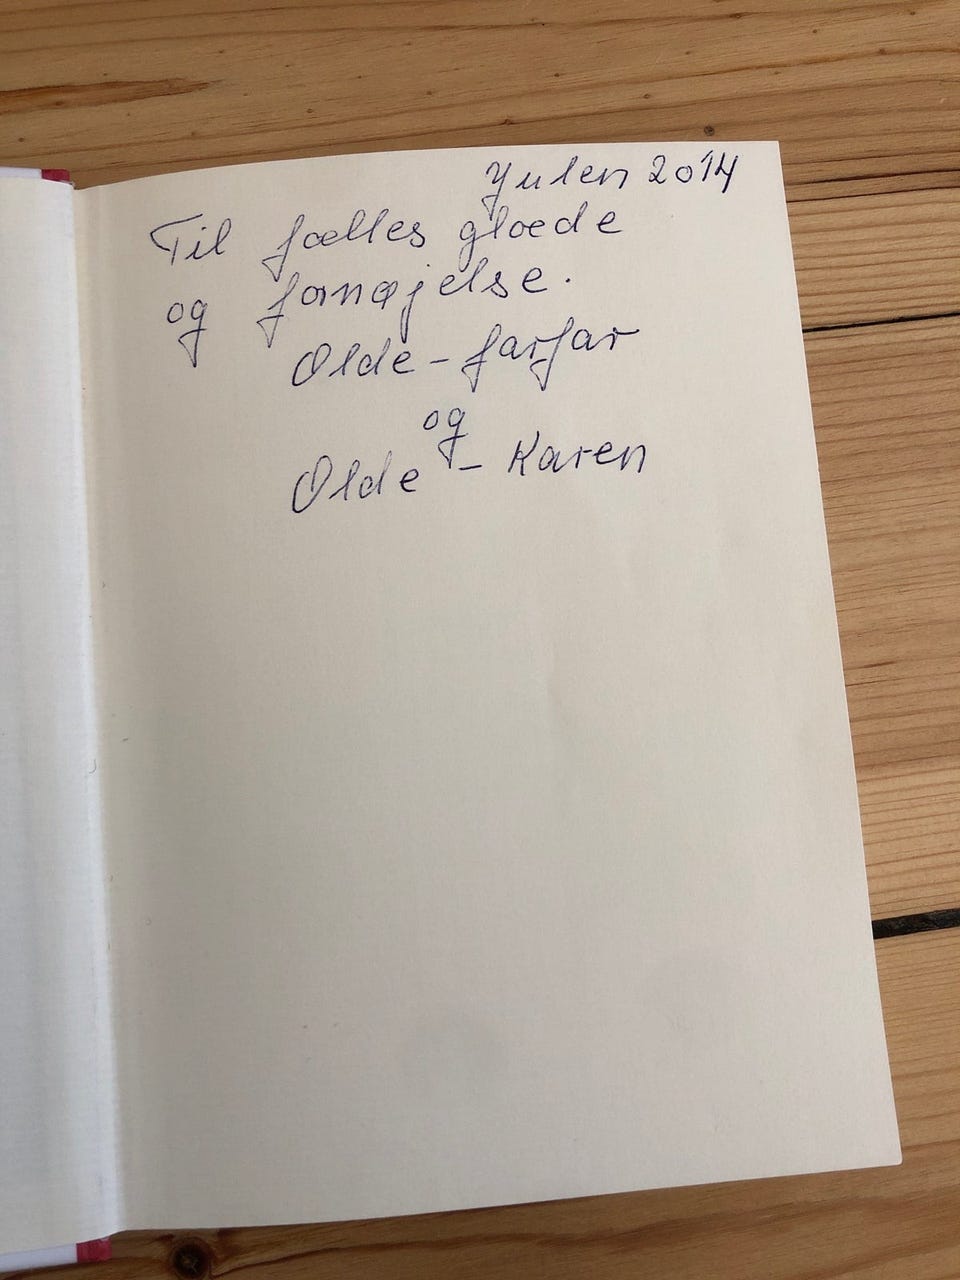 Julen 2014
Til fælles glæde
og fornøjelse.
Olde-farfar
og
Olde - Karen